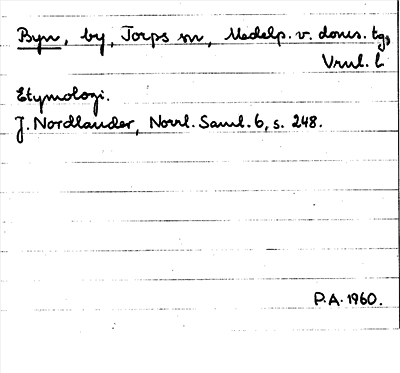 Byn, by, Torps sn, Medelp. v. doms. tg,
Vrnl. l
Etymologi.
J. Nordlander, Norrl. Saml. 6, s. 248.
P.A. 1960.